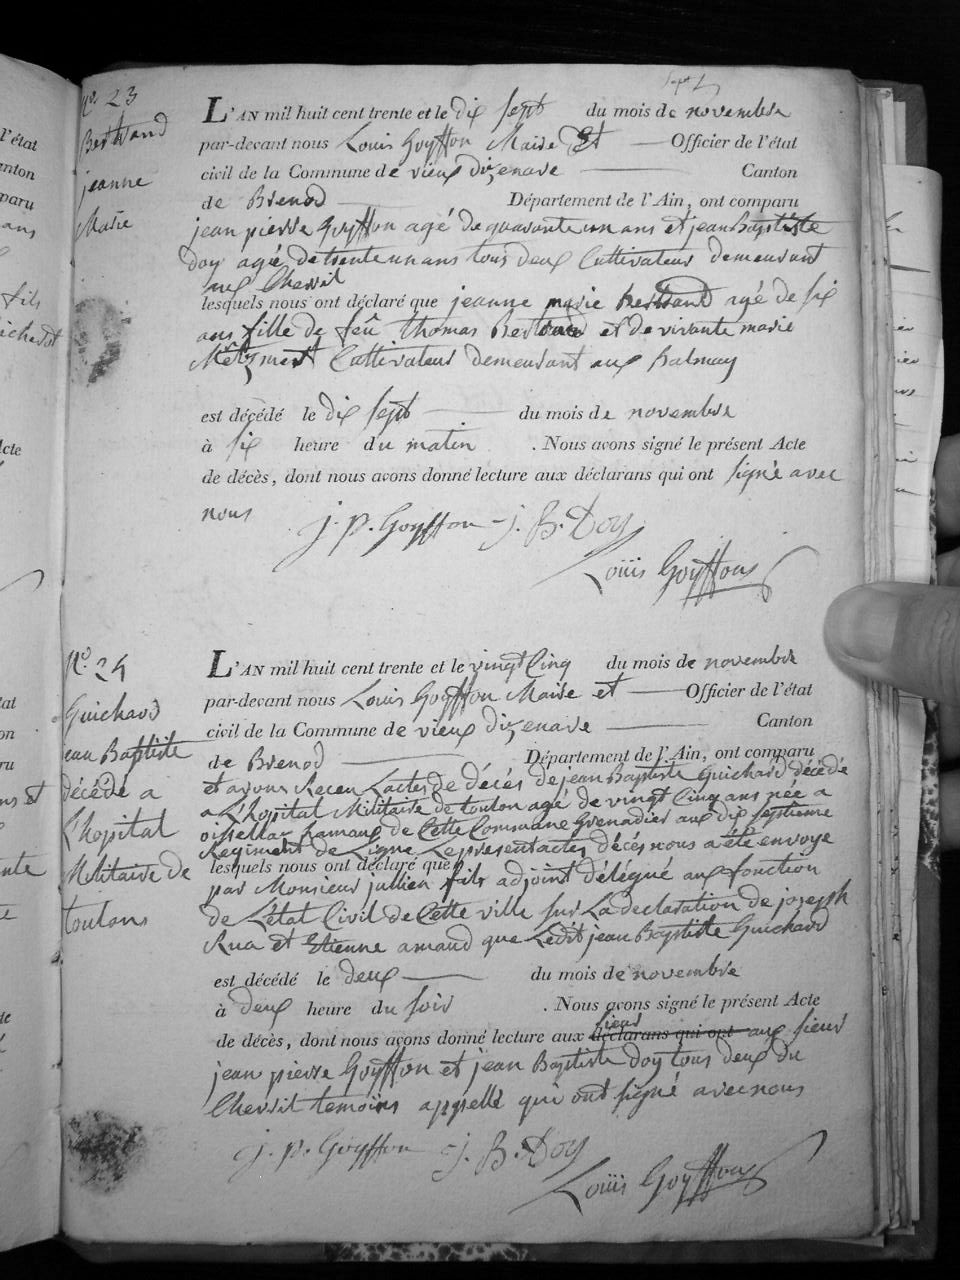 n.o 23
Bertrand
jeanne
Marie
L'AN mil huit cent trente et le dix sept du mois de novembre
par-devant nous Louis Goyffon Maire et Officier de l'état
civil de la Commune de vieux dizenave Canton
de Brenod Département de l'Ain, ont comparu
jean pierre Goyffon agé de quarante un ans et jean Baptiste
doy agée de trente un ans tous deux Cultivateur demeurant
aux Chevril
lesquels nous ont déclaré que jeanne marie Bertrand agé de six
ans fille de feû thomas Bertrand et de vivante marie
Cultivateur demeurant aux balmay
est décédé le dix sept du mois de novembre
à six heure du matin . Nous avons signé le présent Acte
de décès, dont nous avons donné lecture aux déclarans qui ont signé avec
nous
j. p. Goyffon j. B. Doy
Louiis Goyffon
N.o 24
Guichard
ean Baptiste
décédé a
L'hopital
Militaire de
toulons
L'AN mil huit cent trente et le vingt Cinq du mois de novembre
par-devant nous Louis Goyffon Maire et Officier de l'état
civil de la Commune de vieux dizenave Canton
de Brenod Département de l'Ain, ont comparu
et avons Receu L'actes de décés de jean Baptiste Guichard décédé
a L'hopital Militaire de toulon agé de vingt Cinq ans née a
oissellaz hamaux de Cette Commune Grenadier aux dix septieme
Regiment de Ligne Le present actes décés nous a été envoye
lesquels nous ont déclaré que
par Monsieur jullien fils adjoint délégué aux fonction
de L'état Civil de Cette ville sur La declaration de joseph
Rua et Etienne amaud que Ledit jean Baptiste Guichard
est décédé le deux du mois de novembre
à deux heure du soir . Nous avons signé le présent Acte
de décès, dont nous avons donné lecture aux déclarans qui ont aux sieur
jean pierre Goyffon et jean Baptiste doy tous deux du
Chevril temoins appellé qui ont signé avec nous
j. p. Goyffon j. B. Doy
Louiis Goyffon